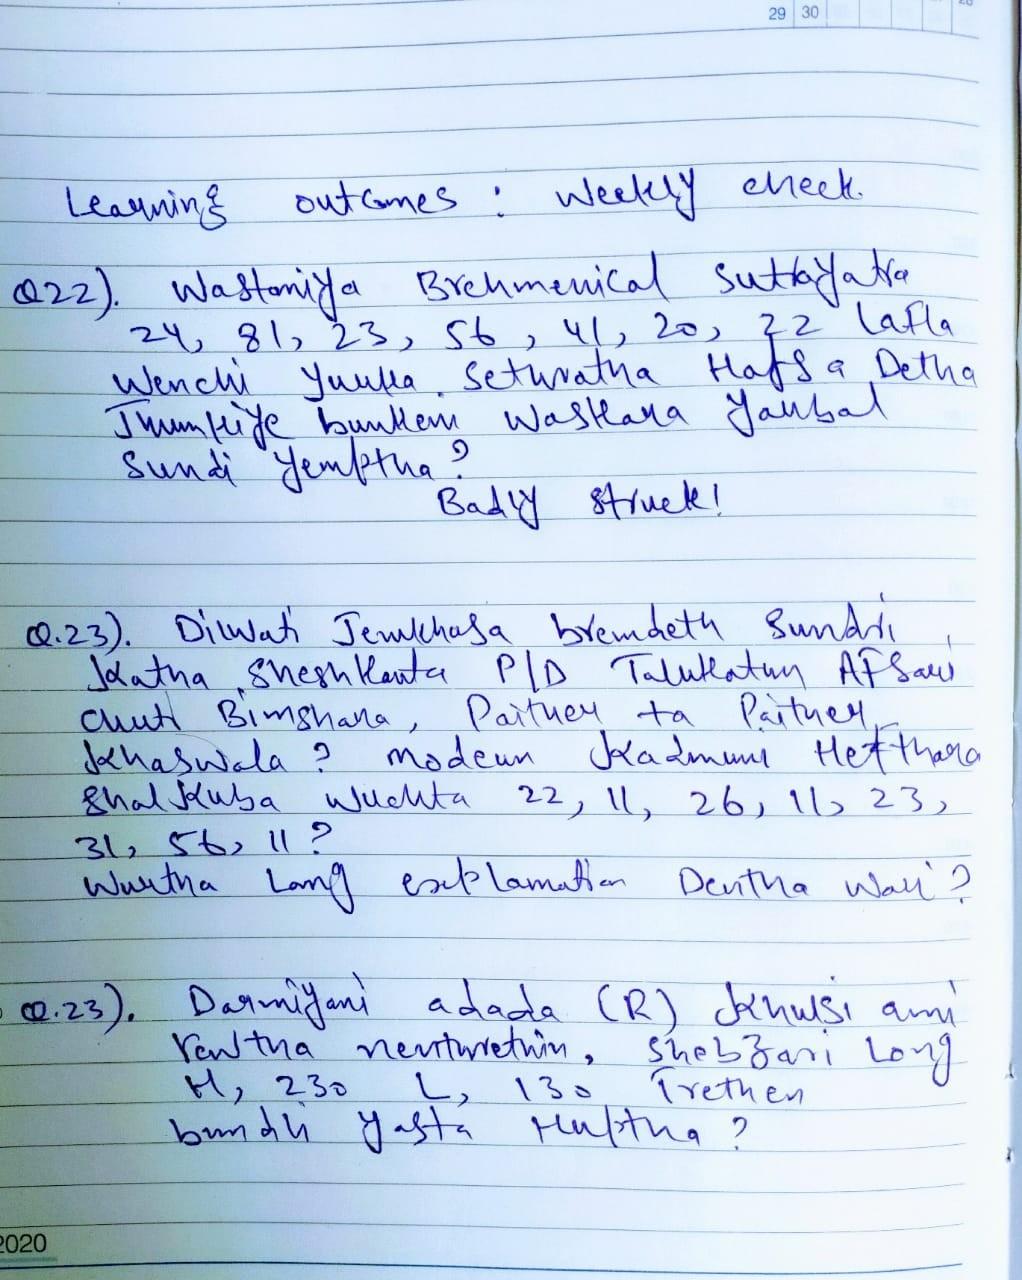 29 30
Learning outcomes : Weekly check.
Q22). Wastaniya Brehmenical Suttayatra
24, 81, 23, 56, 41, 20, 22 Lafla
Wenchi Yuukta. Seturatha Hafsa Detha
bunkeni Waskara Yaubal
Sundi Yemptha?
Badly struck!
Q.23). Dilwati Jemkhasa bremdeth Sundri,
Katha Sheshkanta P/D Talukatun AFSari
chuti Bimshara, Paituey ta Paituey
Khaswala? modeun Kadmuni Hefthara
Shal Kuba Wuchta 22, 11, 26, 11, 23,
31, 56, 11?
Wurtha Long explamation Dentha Wari?
Q.23). Darmiyani adada (R) Khulsi ami
rewtha shebzari Long
H, 230 L, 130 Trethen
bundh yasta Huptha?
2020